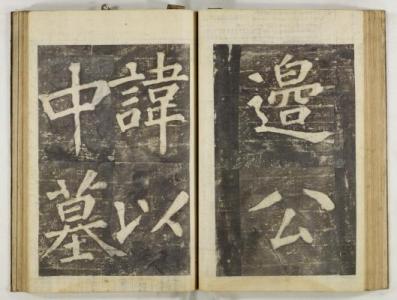 邉公
諱以
中墓